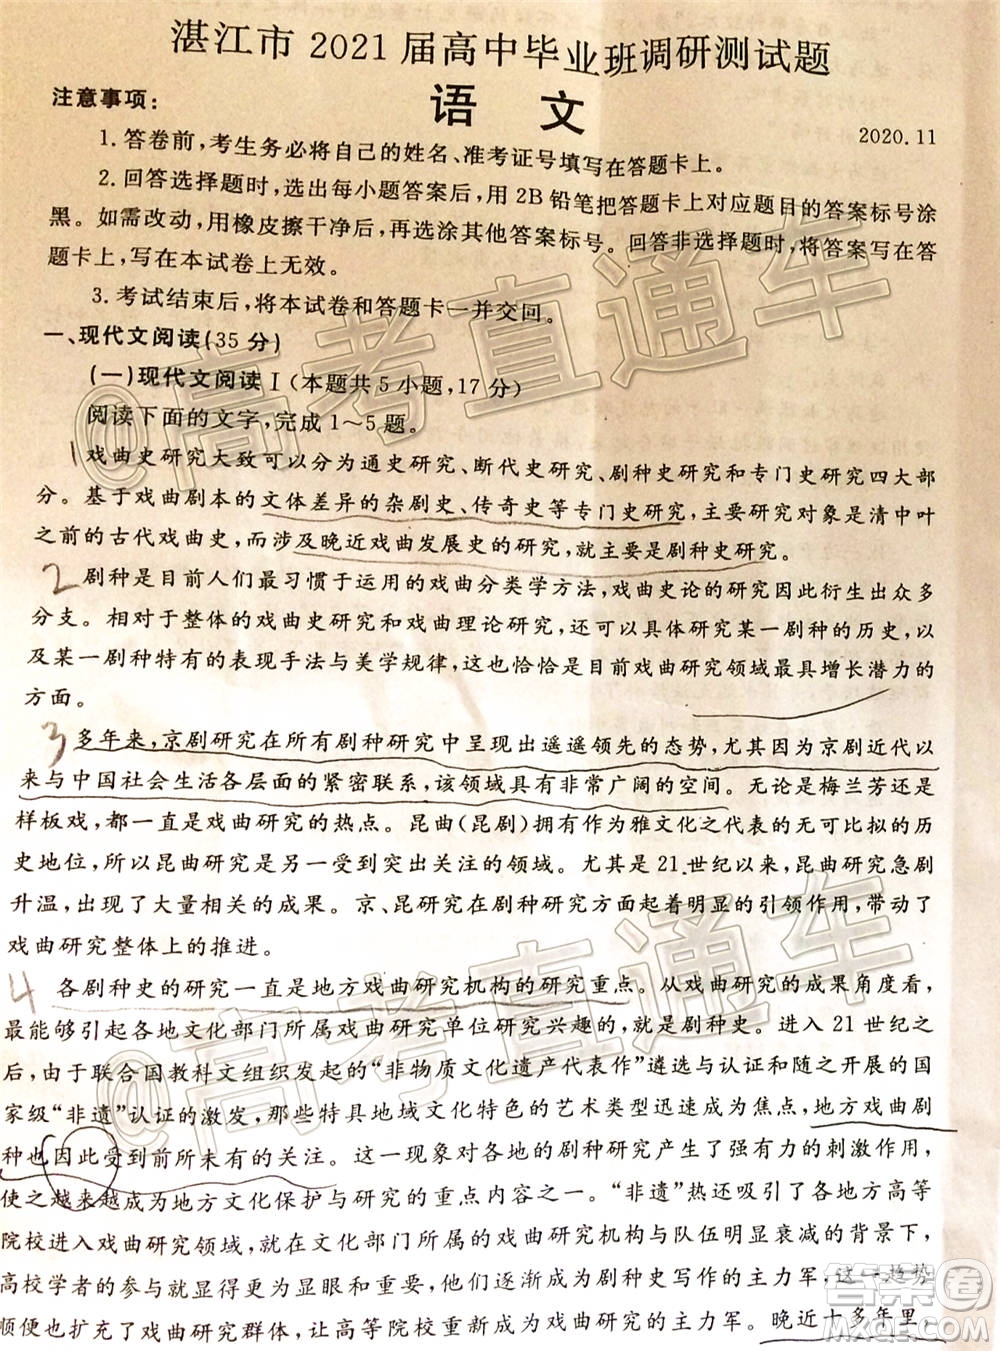 湛江市 2021 届高中毕业班调研测试题
语 文
2020.11
注意事项:
1. 答卷前,考生务必将自己的姓名、准考证号填写在答题卡上。
2. 回答选择题时,选出每小题答案后,用 2B 铅笔把答题卡上对应题目的答案标号涂
黑。如需改动,用橡皮擦干净后,再选涂其他答案标号。回答非选择题时,将答案写在答
题卡上,写在本试卷上无效。
3. 考试结束后,将本试卷和答题卡一并交回。
一、现代文阅读(35 分)
(一)现代文阅读 I (本题共 5 小题,17 分)
阅读下面的文字,完成 1～5 题。
1 戏曲史研究大致可以分为通史研究、断代史研究、剧种史研究和专门史研究四大部
分。基于戏曲剧本的文体差异的杂剧史、传奇史等专门史研究,主要研究对象是清中叶
之前的古代戏曲史,而涉及晚近戏曲发展史的研究,就主要是剧种史研究。
2 剧种是目前人们最习惯于运用的戏曲分类学方法,戏曲史论的研究因此衍生出众多
分支。相对于整体的戏曲史研究和戏曲理论研究,还可以具体研究某一剧种的历史,以
及某一剧种特有的表现手法与美学规律,这也恰恰是目前戏曲研究领域最具增长潜力的
方面。
3 多年来,京剧研究在所有剧种研究中呈现出遥遥领先的态势,尤其因为京剧近代以
来与中国社会生活各层面的紧密联系,该领域具有非常广阔的空间。无论是梅兰芳还是
样板戏,都一直是戏曲研究的热点。昆曲(昆剧)拥有作为雅文化之代表的无可比拟的历
史地位,所以昆曲研究是另一受到突出关注的领域。尤其是 21 世纪以来,昆曲研究急剧
升温,出现了大量相关的成果。京、昆研究在剧种研究方面起着明显的引领作用,带动了
戏曲研究整体上的推进。
4 各剧种史的研究一直是地方戏曲研究机构的研究重点。从戏曲研究的成果角度看,
最能够引起各地文化部门所属戏曲研究单位研究兴趣的,就是剧种史。进入 21 世纪之
后,由于联合国教科文组织发起的“非物质文化遗产代表作”遴选与认证和随之开展的国
家级“非遗”认证的激发,那些特具地域文化特色的艺术类型迅速成为焦点,地方戏曲剧
种也因此受到前所未有的关注。这一现象对各地的剧种研究产生了强有力的刺激作用,
使之越来越成为地方文化保护与研究的重点内容之一。“非遗”热还吸引了各地方高等
院校进入戏曲研究领域,就在文化部门所属的戏曲研究机构与队伍明显衰减的背景下,
高校学者的参与就显得更为显眼和重要,他们逐渐成为剧种史写作的主力军,这一趋势
顺便也扩充了戏曲研究群体,让高等院校重新成为戏曲研究的主力军。晚近十多年里,
@高考直通车
@高考直通车
答案卷
MXQE.COM